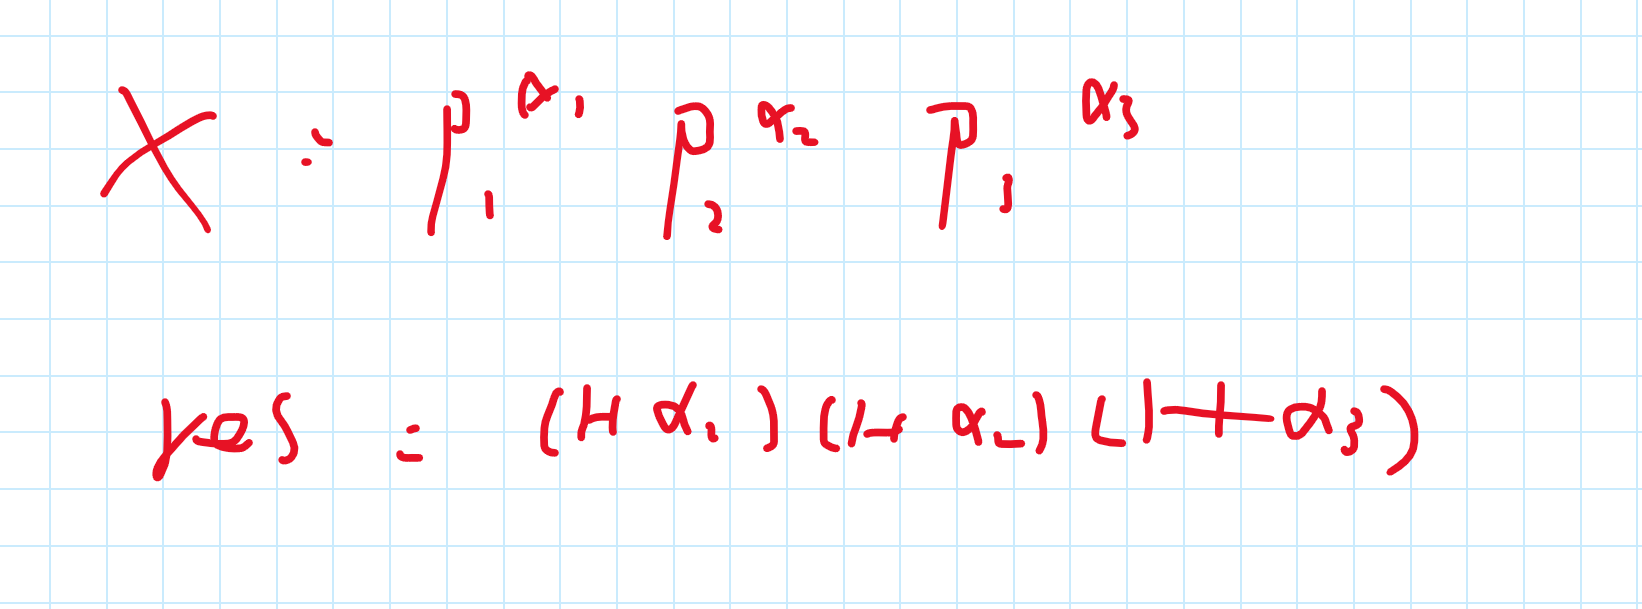 X = p₁^α₁ p₂^α₂ p₃^α₃
res = (1+α₁)(1+α₂)(1+α₃)